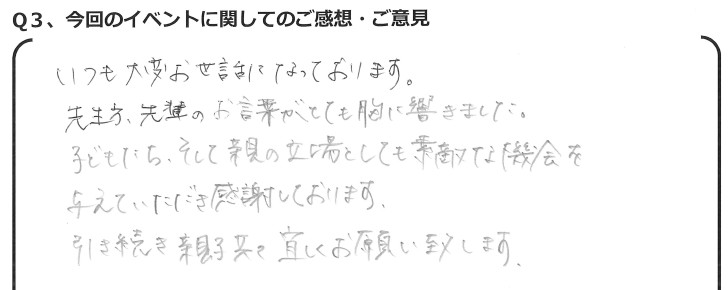 Q3、今回のイベントに関してのご感想・ご意見
いつも大変お世話になっております。
先生方、先輩のお言葉がとても胸に響きました。
子どもたち、そして親の立場としても素敵な機会を
与えていただき感謝しております。
引き続き親子共々宜しくお願い致します。